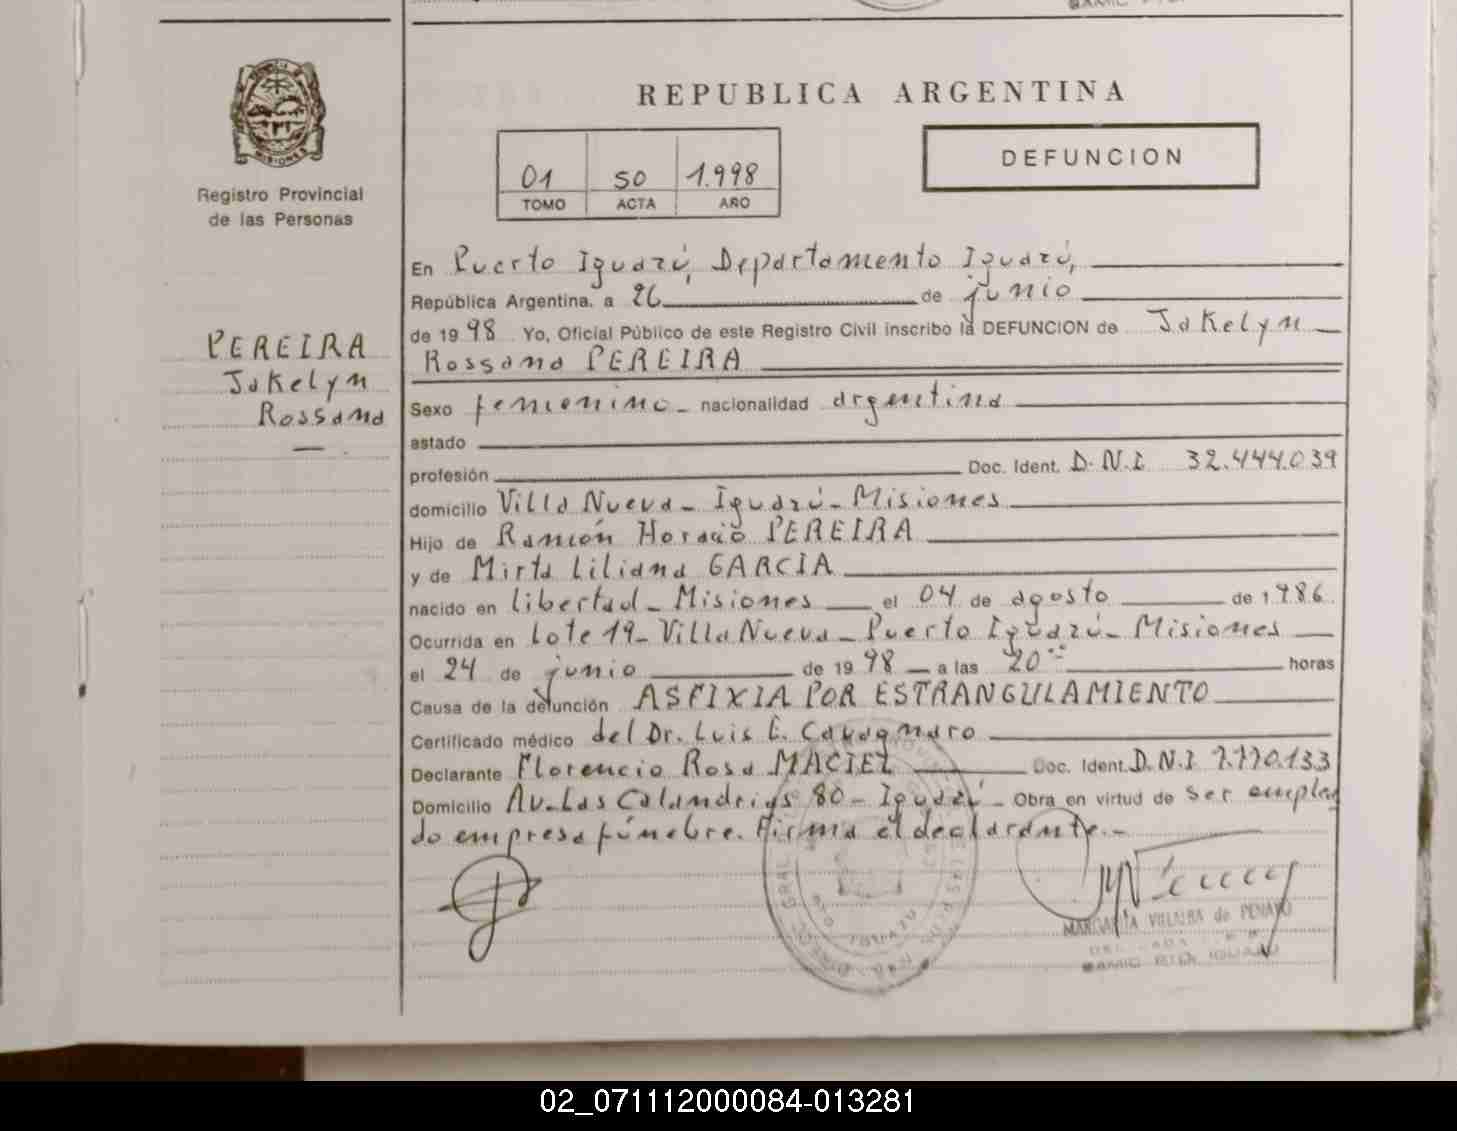 REPUBLICA ARGENTINA
DEFUNCION
01 50 1.998
TOMO ACTA AÑO
MISIONES
Registro Provincial
de las Personas
PEREIRA
Jakelyn
Rossana
En Puerto Iguazú, Departamento Iguazú,
República Argentina, a 26 de junio
de 1998 Yo, Oficial Público de este Registro Civil inscribo la DEFUNCION de Jakelyn
Rossana PEREIRA
Sexo femenino - nacionalidad argentina
estado
profesión Doc. Ident. D.N.I 32.444.039
domicilio Villa Nueva - Iguazú - Misiones
Hijo de Ramón Horacio PEREIRA
y de Mirta Liliana GARCIA
nacido en Libertad - Misiones el 04 de agosto de 1986
Ocurrida en Lote 19 - Villa Nueva - Puerto Iguazú - Misiones
el 24 de junio de 1998 a las 20 horas
Causa de la defunción ASFIXIA POR ESTRANGULAMIENTO
Certificado médico del Dr. Luis E. Cavagnaro
Declarante Florencio Rosa MACIEL Doc. Ident. D.N.I
Domicilio Av. Las Calandrias 80 - Iguazú - Obra en virtud de ser emplea
do empresa fúnebre. Firma el declarante.-
MARGARITA VILLALBA de PENAYO
02_071112000084-013281